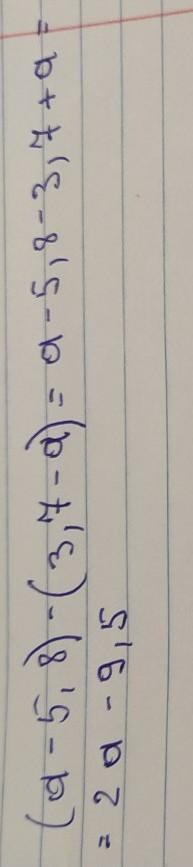 (a - 5,8) - (3,7 - a) = a - 5,8 - 3,7 + a =
= 2a - 9,5